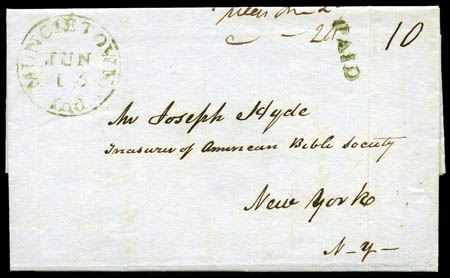 MUNCIETOWN
JUN
13
Ind
PAID
10
Mr Joseph Hyde
Treasurer of American Bible Society
New York
N-y-